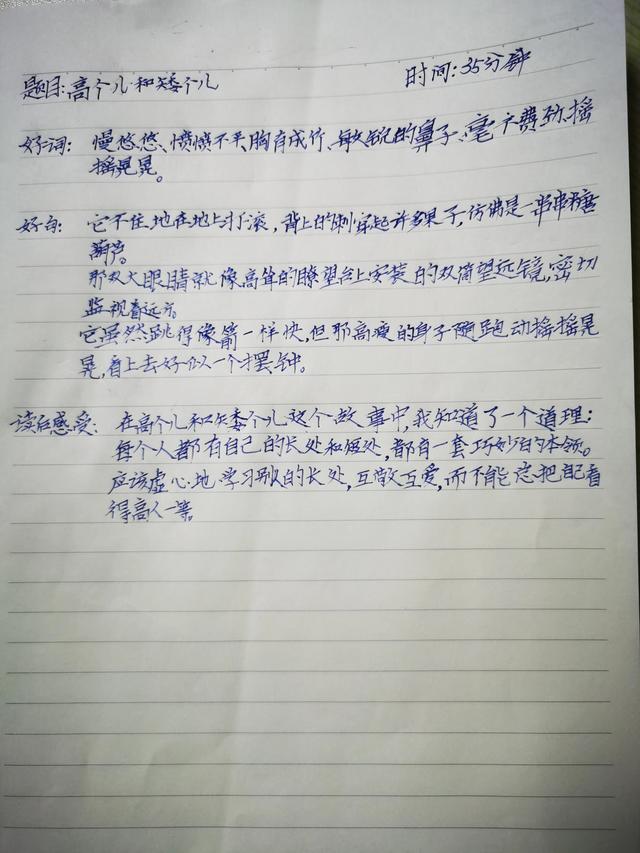 题目:高个儿和矮个儿 时间:35分钟
好词: 慢悠悠、愤愤不平、胸有成竹、敏锐的鼻子、毫不费劲、摇
摇晃晃。
好句: 它不住地在地上打滚,背上的刺穿起许多果子,仿佛是一串串糖
葫芦。
那双大眼睛就像高耸的瞭望台上安装的双筒望远镜,密切
监视着远方。
它虽然跳得像箭一样快,但那高瘦的身子随跑动摇摇晃
晃,看上去好似一个摆钟。
读后感受: 在高个儿和矮个儿这个故事中,我知道了一个道理:
每个人都有自己的长处和短处,都有一套巧妙的本领。
应该虚心地学习别人的长处,互敬互爱,而不能总把自己看
得高人一等。